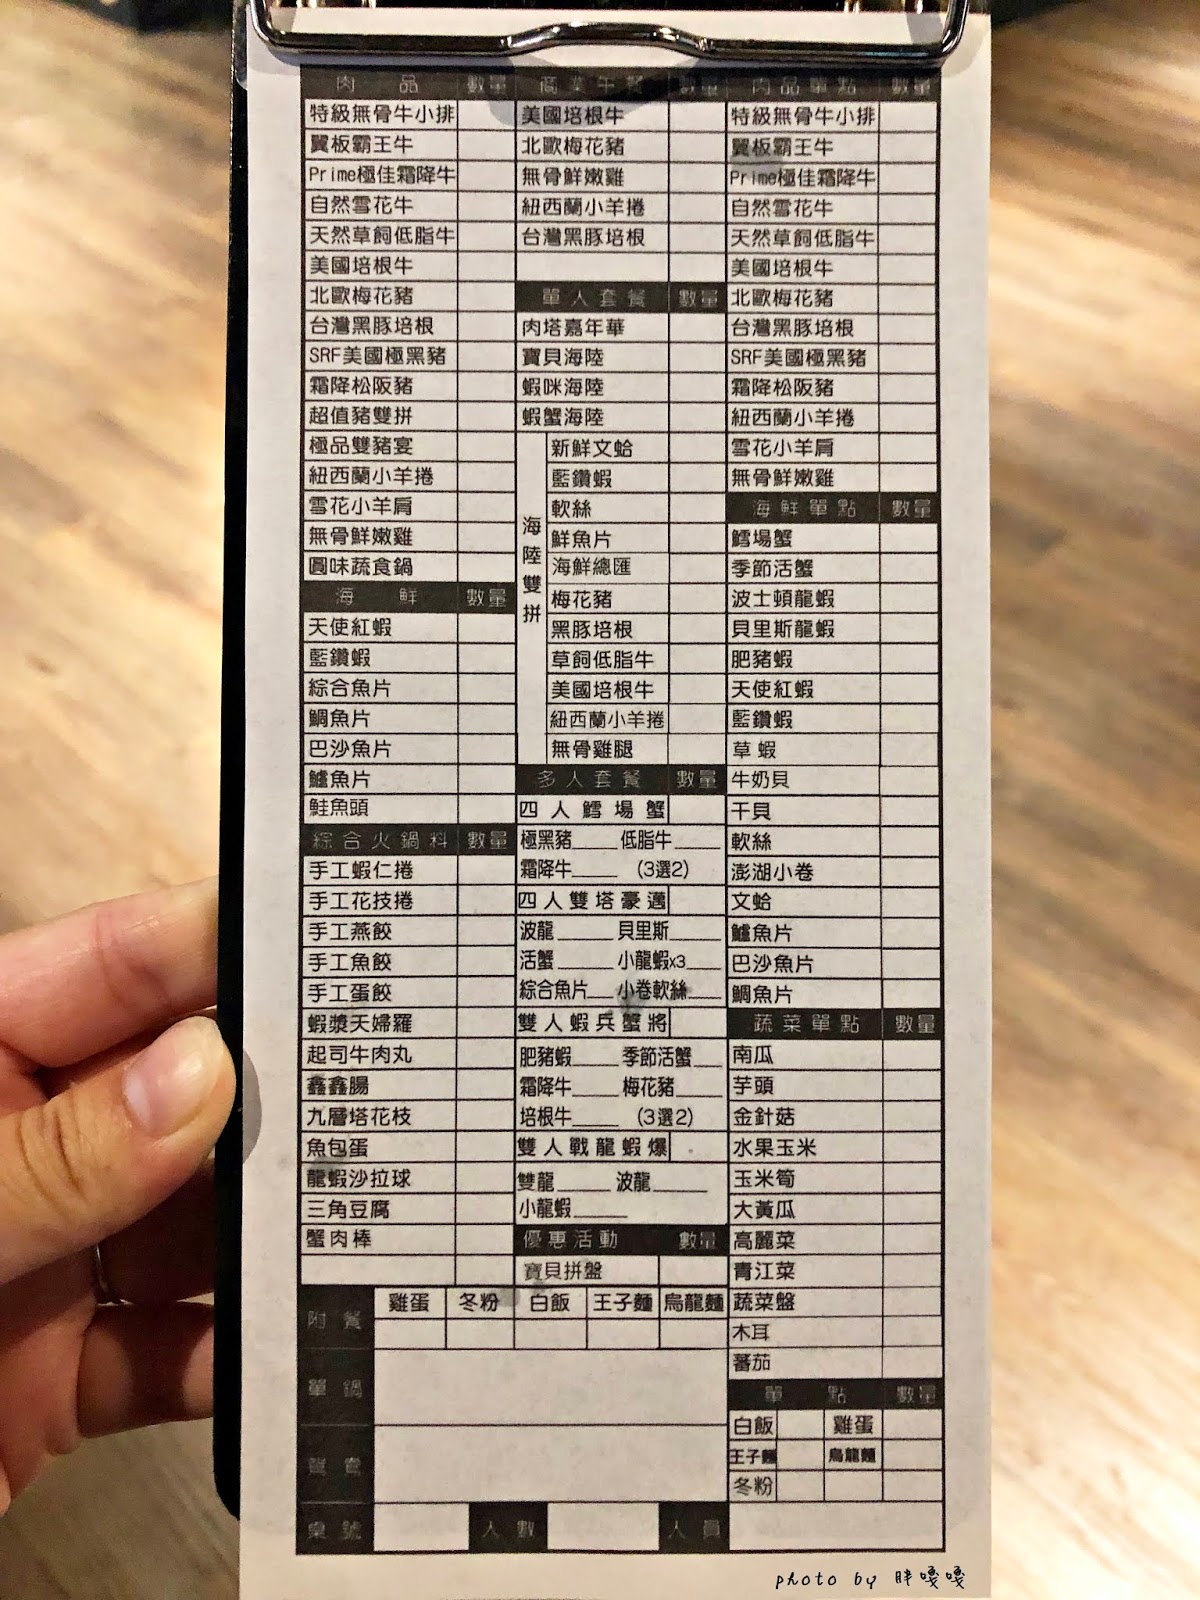 肉品 數量
特級無骨牛小排
翼板霸王牛
Prime極佳霜降牛
自然雪花牛
天然草飼低脂牛
美國培根牛
北歐梅花豬
台灣黑豚培根
SRF美國極黑豬
霜降松阪豬
超值豬雙拼
極品雙豬宴
紐西蘭小羊捲
雪花小羊肩
無骨鮮嫩雞
圓味蔬食鍋
海鮮 數量
天使紅蝦
藍鑽蝦
綜合魚片
鯛魚片
巴沙魚片
鱸魚片
鮭魚頭
綜合火鍋料 數量
手工蝦仁捲
手工花技捲
手工燕餃
手工魚餃
手工蛋餃
蝦漿天婦羅
起司牛肉丸
鑫鑫腸
九層塔花枝
魚包蛋
龍蝦沙拉球
三角豆腐
蟹肉棒
商業午餐 數量
美國培根牛
北歐梅花豬
無骨鮮嫩雞
紐西蘭小羊捲
台灣黑豚培根
單人套餐 數量
肉塔嘉年華
寶貝海陸
蝦咪海陸
蝦蟹海陸
海陸雙拼
新鮮文蛤
藍鑽蝦
軟絲
鮮魚片
海鮮總匯
梅花豬
黑豚培根
草飼低脂牛
美國培根牛
紐西蘭小羊捲
無骨雞腿
多人套餐 數量
四人鱈場蟹
極黑豬____ 低脂牛____
霜降牛____ (3選2)
四人雙塔豪邁
波龍____ 貝里斯____
活蟹____ 小龍蝦x3___
綜合魚片__ 小卷軟絲___
雙人蝦兵蟹將
肥豬蝦____ 季節活蟹__
霜降牛____ 梅花豬____
培根牛____ (3選2)
雙人戰龍蝦爆
雙龍____ 波龍____
小龍蝦____
優惠活動 數量
寶貝拼盤
肉品單點 數量
特級無骨牛小排
翼板霸王牛
Prime極佳霜降牛
自然雪花牛
天然草飼低脂牛
美國培根牛
北歐梅花豬
台灣黑豚培根
SRF美國極黑豬
霜降松阪豬
紐西蘭小羊捲
雪花小羊肩
無骨鮮嫩雞
海鮮單點 數量
鱈場蟹
季節活蟹
波士頓龍蝦
貝里斯龍蝦
肥豬蝦
天使紅蝦
藍鑽蝦
草蝦
牛奶貝
干貝
軟絲
澎湖小卷
文蛤
鱸魚片
巴沙魚片
鯛魚片
蔬菜單點 數量
南瓜
芋頭
金針菇
水果玉米
玉米筍
大黃瓜
高麗菜
青江菜
蔬菜盤
木耳
蕃茄
單點 數量
白飯 雞蛋
王子麵 烏龍麵
冬粉
附餐 雞蛋 冬粉 白飯 王子麵 烏龍麵
單鍋
鴛鴦
桌號 人數 人員
photo by 胖嘎嘎